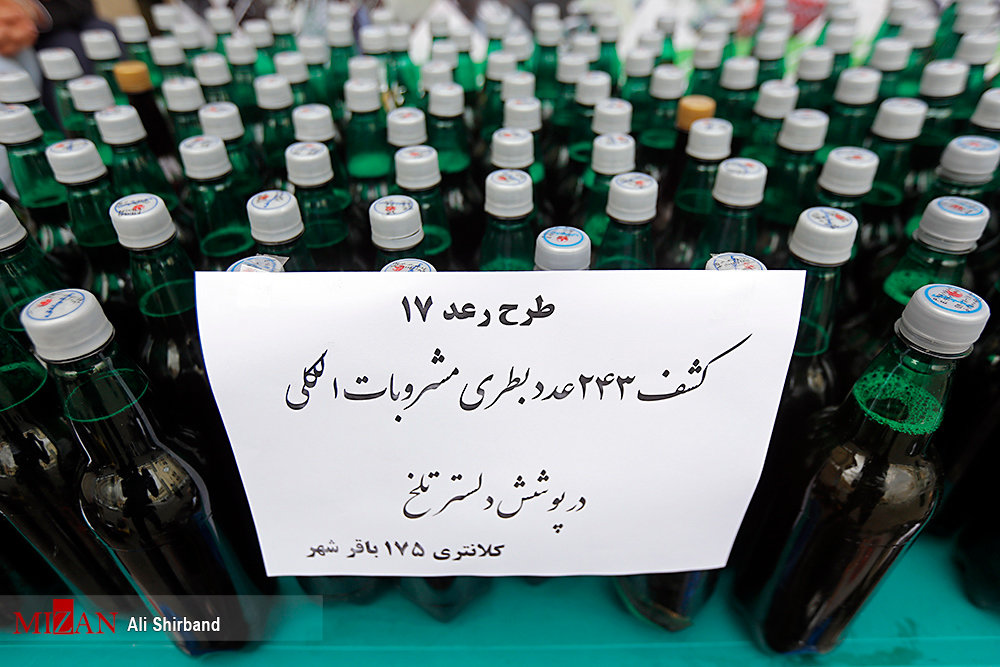 طرح رعد ۱۷
کشف ۲۴۳ عدد بطری مشروبات الکلی
در پوشش دلستر تلخ
کلانتری ۱۷۵ باقر شهر
MIZAN Ali Shirband